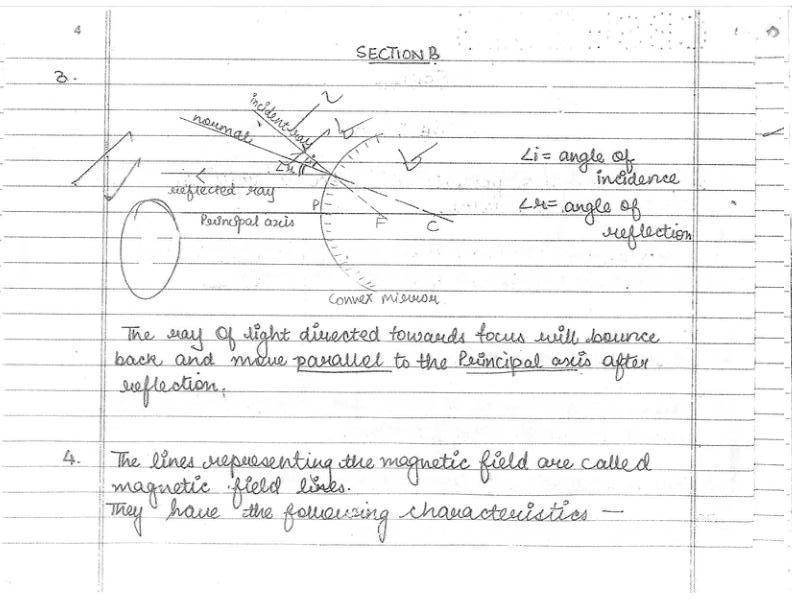 4
SECTION B
3.
incident ray
normal
∠i
∠r
reflected ray
P
Principal axis
F
C
∠i = angle of
incidence
∠r = angle of
reflection
Convex mirror
The ray of light directed towards focus will bounce
back and move parallel to the Principal axis after
reflection.
4. The lines representing the magnetic field are called
magnetic field lines.
They have the following characteristics —